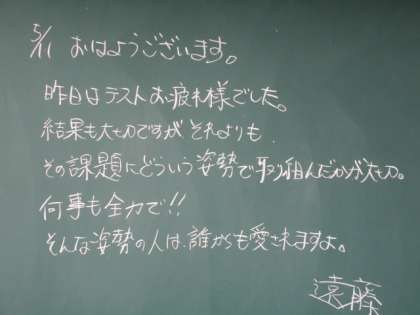 5/11 おはようございます。
昨日はラストお疲れ様でした。
結果も大切ですがそれよりも
その課題にどういう姿勢で取り組んだかが大切。
何事も全力で!!
そんな姿勢の人は、誰からも愛されますよ。
遠藤